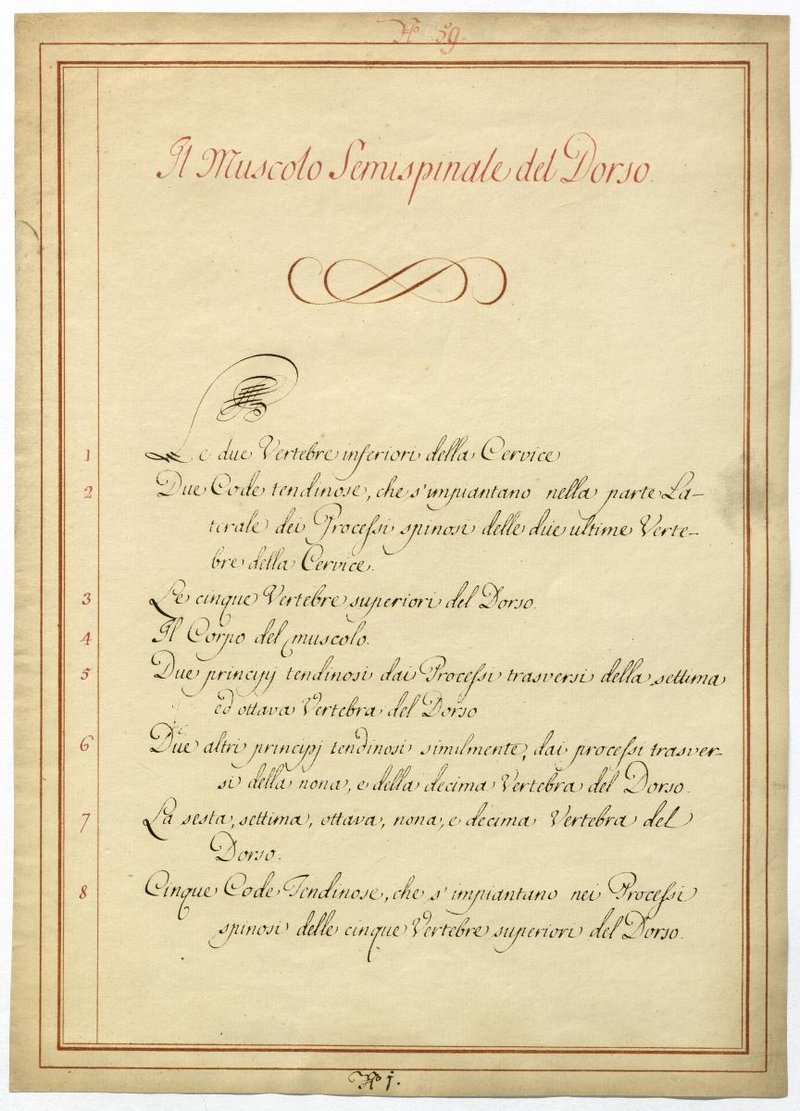 Nº 59.
Il Muscolo Semispinale del Dorso.
1 Le due Vertebre inferiori della Cervice
2 Due Code tendinose, che s'impiantano nella parte La-
terale dei Processi spinosi delle due ultime Verte-
bre della Cervice.
3 Le cinque Vertebre superiori del Dorso.
4 Il Corpo del muscolo.
5 Due principj tendinosi dai Processi trasversi della settima
ed ottava Vertebra del Dorso
6 Due altri principj tendinosi similmente, dai processi trasver-
si della nona, e della decima Vertebra del Dorso.
7 La sesta, settima, ottava, nona, e decima Vertebra del
Dorso.
8 Cinque Code Tendinose, che s'impiantano nei Processi
spinosi delle cinque Vertebre superiori del Dorso.
Nº 1.